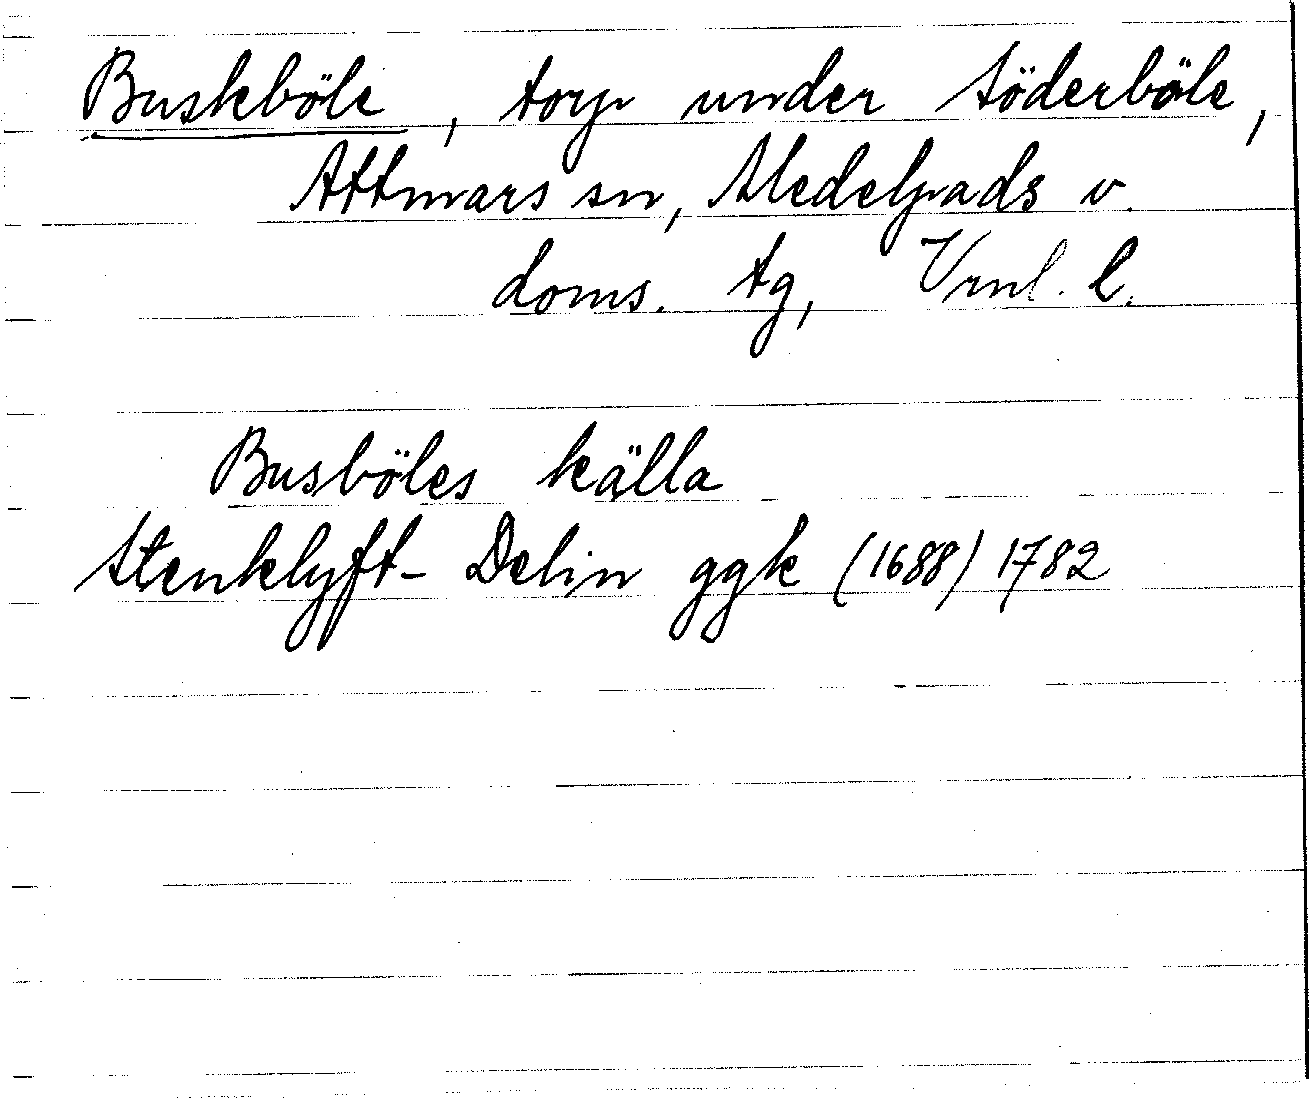 Buskeböle, torp under Söderböle,
Attmars sn, Medelpads v.
doms. tg, Vrnl. l.
Busböles källa
Stenklyft- Delin ggk (1688) 1782